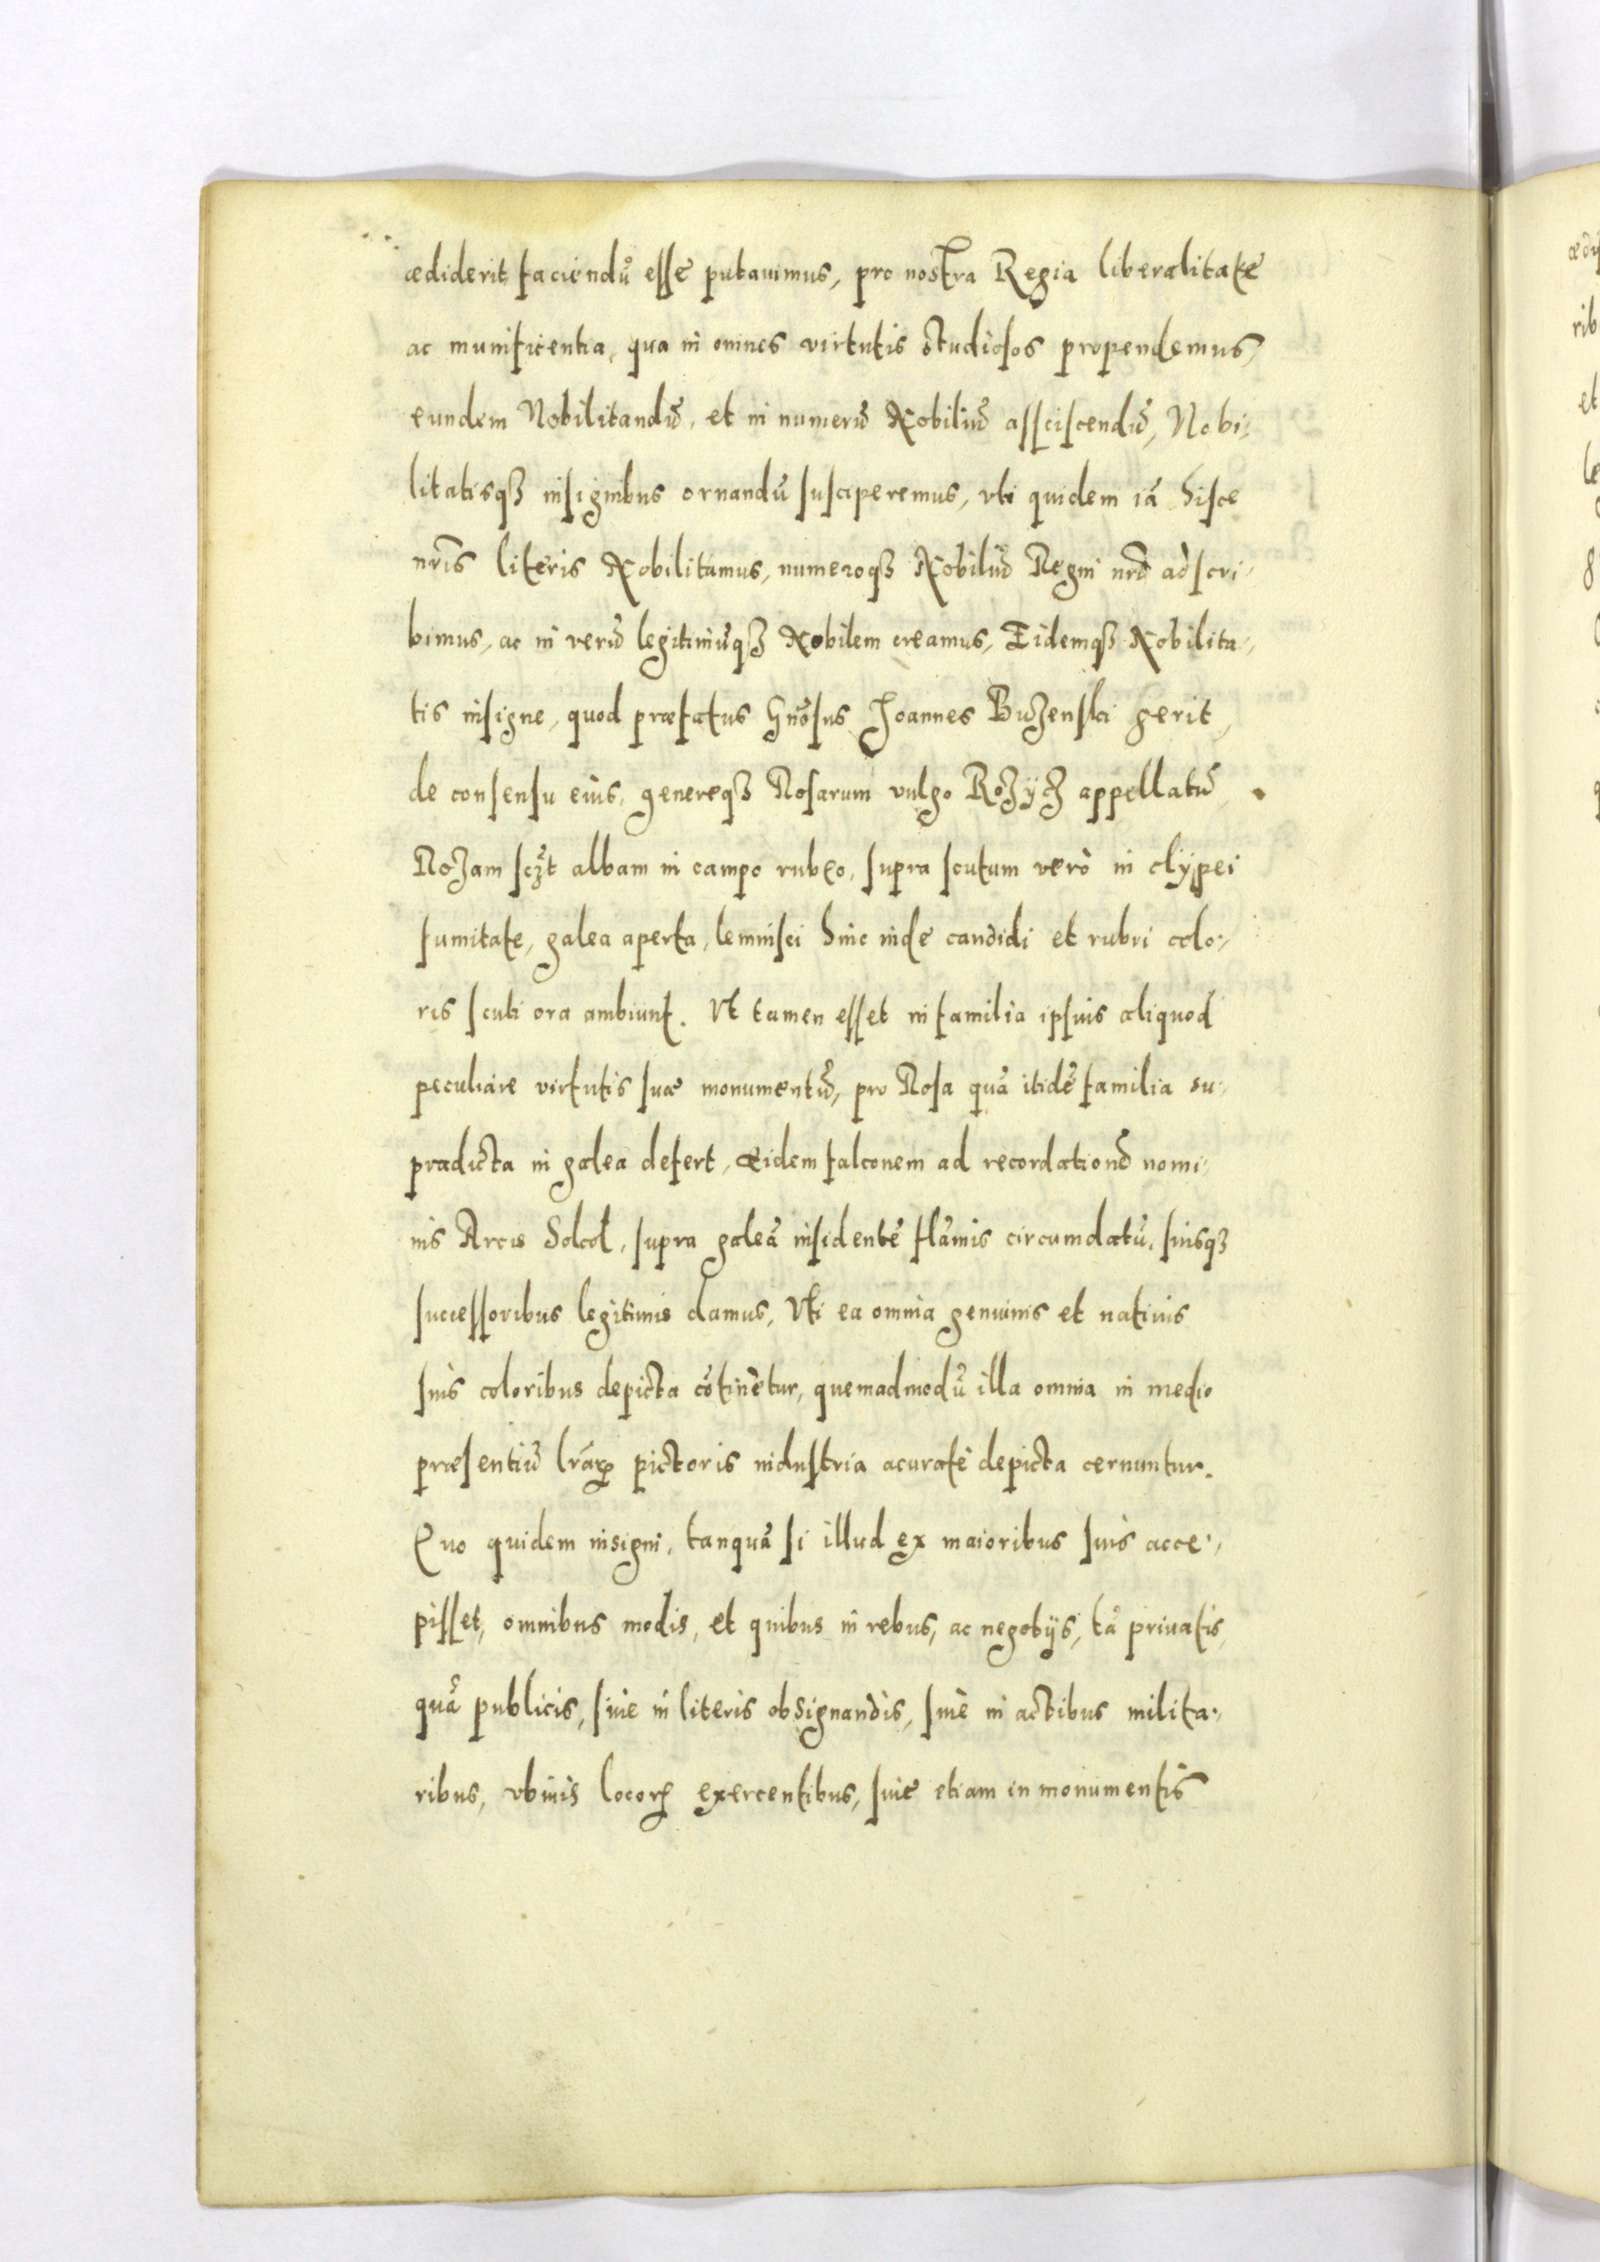 ædiderit faciendũ esse putauimus, pro nostra Regia liberalitate
ac munificentia, qua in omnes virtutis studiosos propendemus,
eundem Nobilitandũ, et in numerũ Nobiliũ assciscendũ, Nobi-
litatisqꝫ insignibus ornandũ susciperemus, vti quidem iã hisce
nr̃is literis Nobilitamus, numeroqꝫ Nobiliũ Regni nr̃i adscri-
bimus, ac in verũ legitimũqꝫ Nobilem creamus, Eidemqꝫ Nobilita-
tis insigne, quod præfatus Gnõsus Joannes Buzenski gerit,
de consensu eius, genereqꝫ Rosarum vulgo Rozÿcz appellatũ
Rozam scꝫt albam in campo rubro, supra scutum verò in clÿpei
sumitate, galea aperta, lemnisci hinc inde candidi et rubri colo-
ris scuti ora ambiunt. Vt tamen esset in familia ipsius aliquod
peculiare virtutis suæ monumentũ, pro Rosa quã itidẽ familia su-
pradicta in galea defert, eidem falconem ad recordationẽ nomi-
nis Arcis Sokol, supra galeã insidentẽ flãmis circumdatũ, suisqꝫ
successoribus legitimis damus, Vti ea omnia genuinis et natiuis
suis coloribus depicta cõtinẽtur, quemadmodũ illa omnia in medio
præsentiũ lr̃arꝝ pictoris industria acuratè depicta cernuntur.
Quo quidem insigni, tanquã si illud ex maioribus suis acce-
pisset, omnibus modis, et quibus in rebus, ac negotijs, tã priuatis,
quã publicis, siue in literis obsignandis, siue in actibus milita-
ribus, vbiuis locorꝝ exercentibus, siue etiam in monumentis